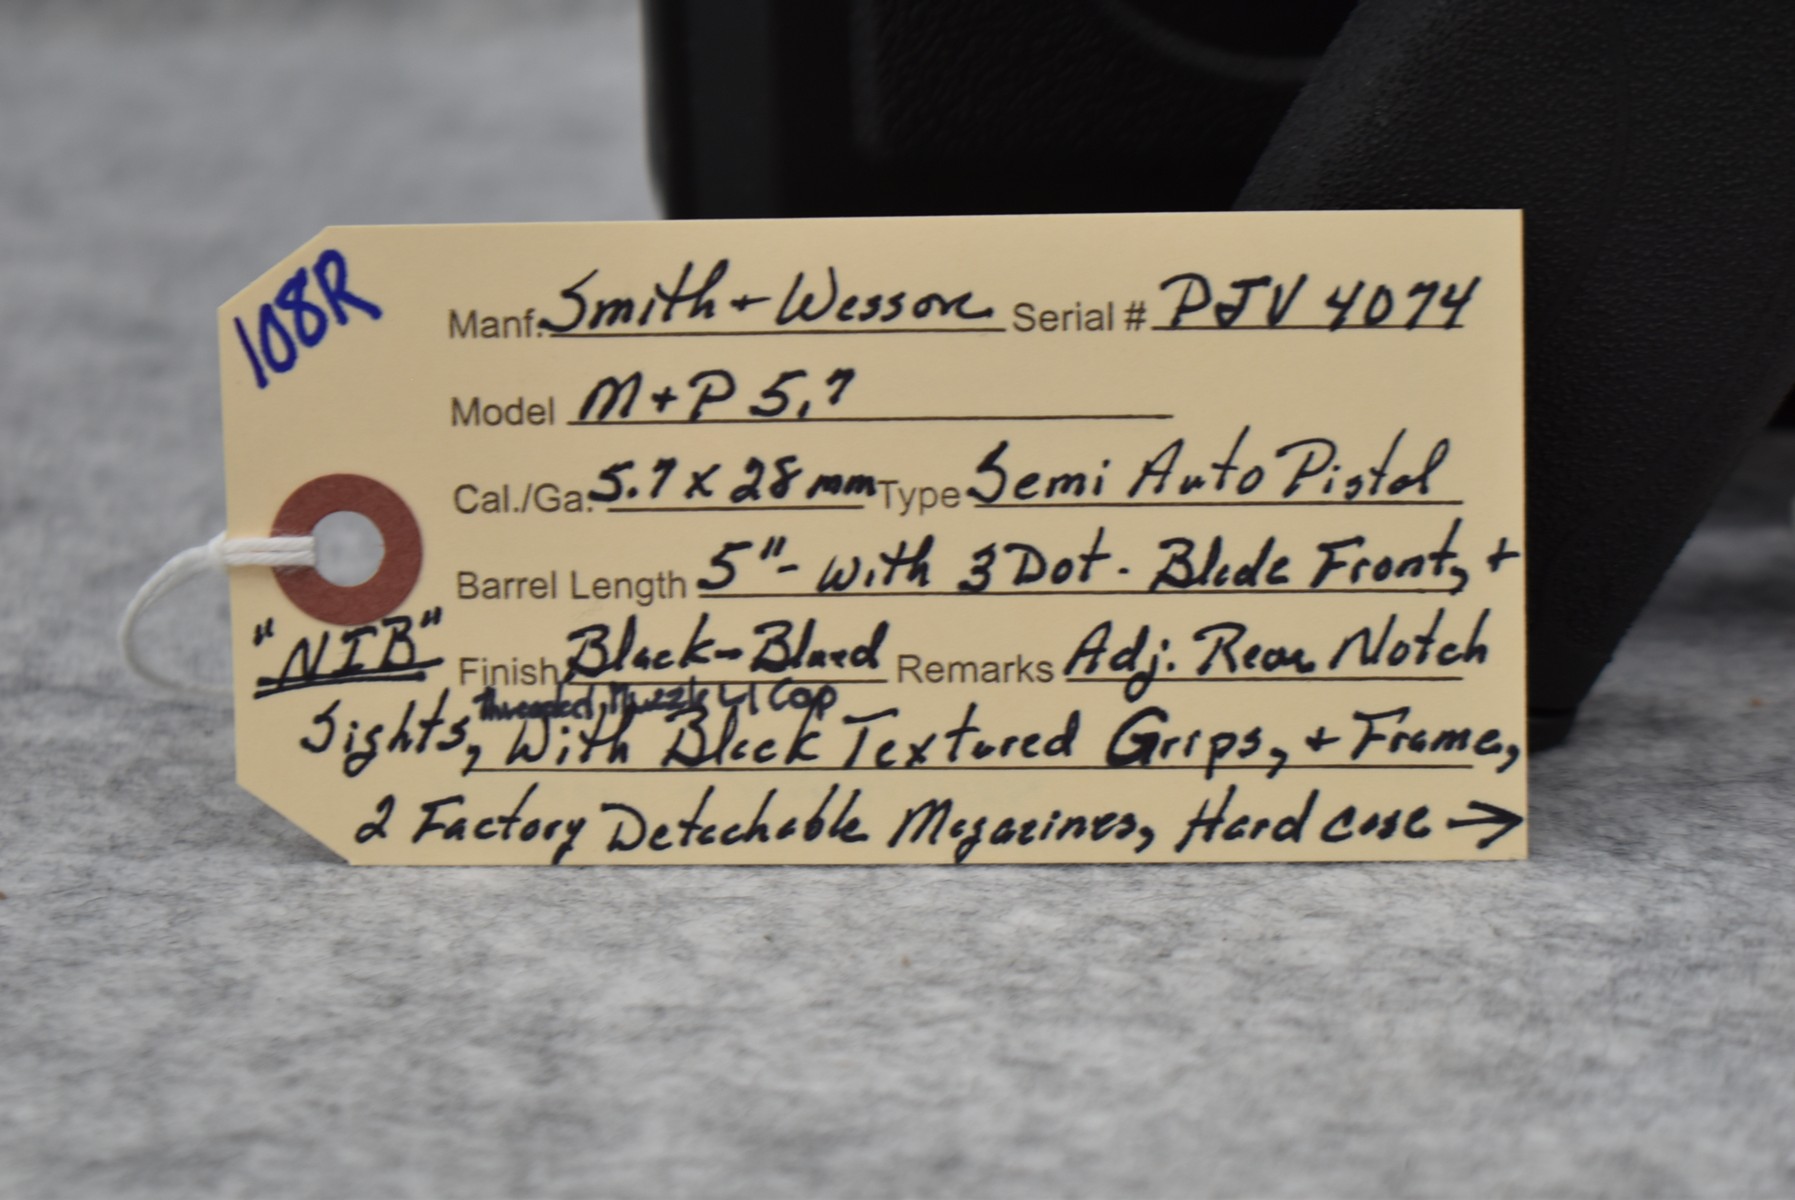 108R
Manf. Smith + Wesson Serial # PJV 4074
Model M+P 5.7
Cal./Ga. 5.7 x 28 mm Type Semi Auto Pistol
Barrel Length 5" - with 3 Dot - Blade Front, +
"NIB" Finish Black - Blued Remarks Adj. Rear Notch
threaded, Muzzle w/ Cap
Sights, With Black Textured Grips, + Frame,
2 Factory Detachable Magazines, Hard case →